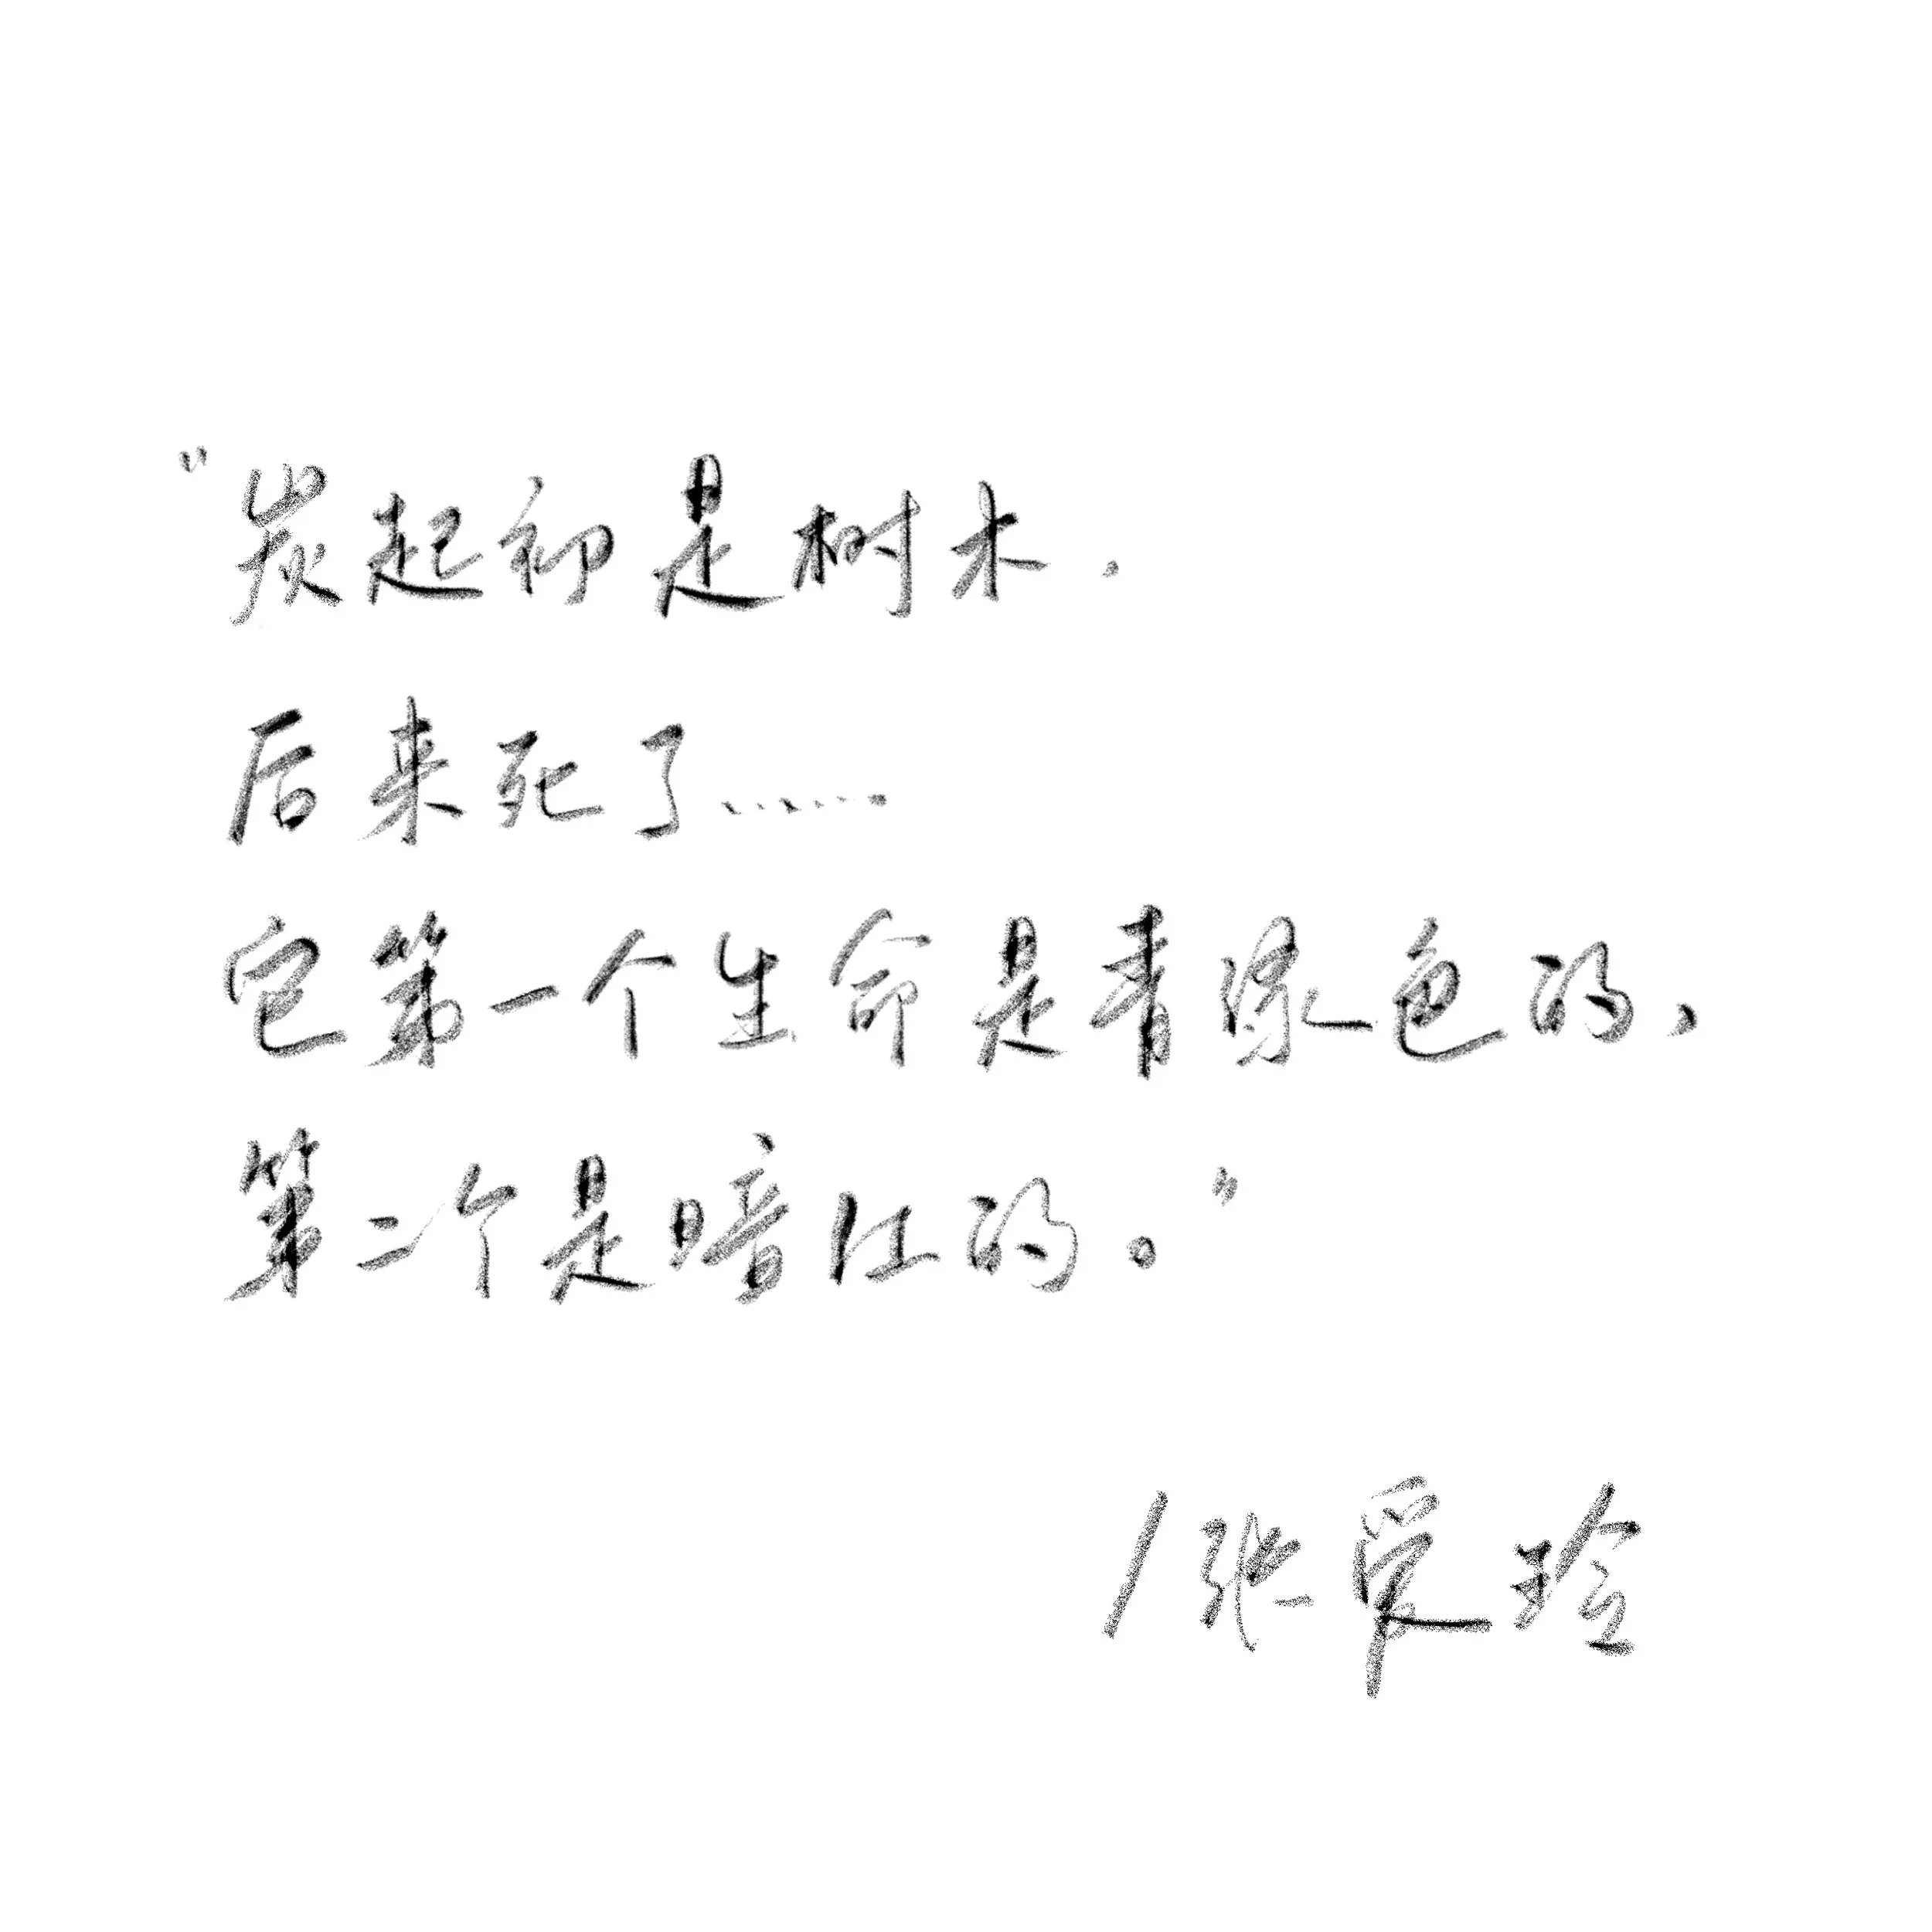 “炭起初是树木.
后来死了……
它第一个生命是青绿色的,
第二个是暗红的。”
/张爱玲